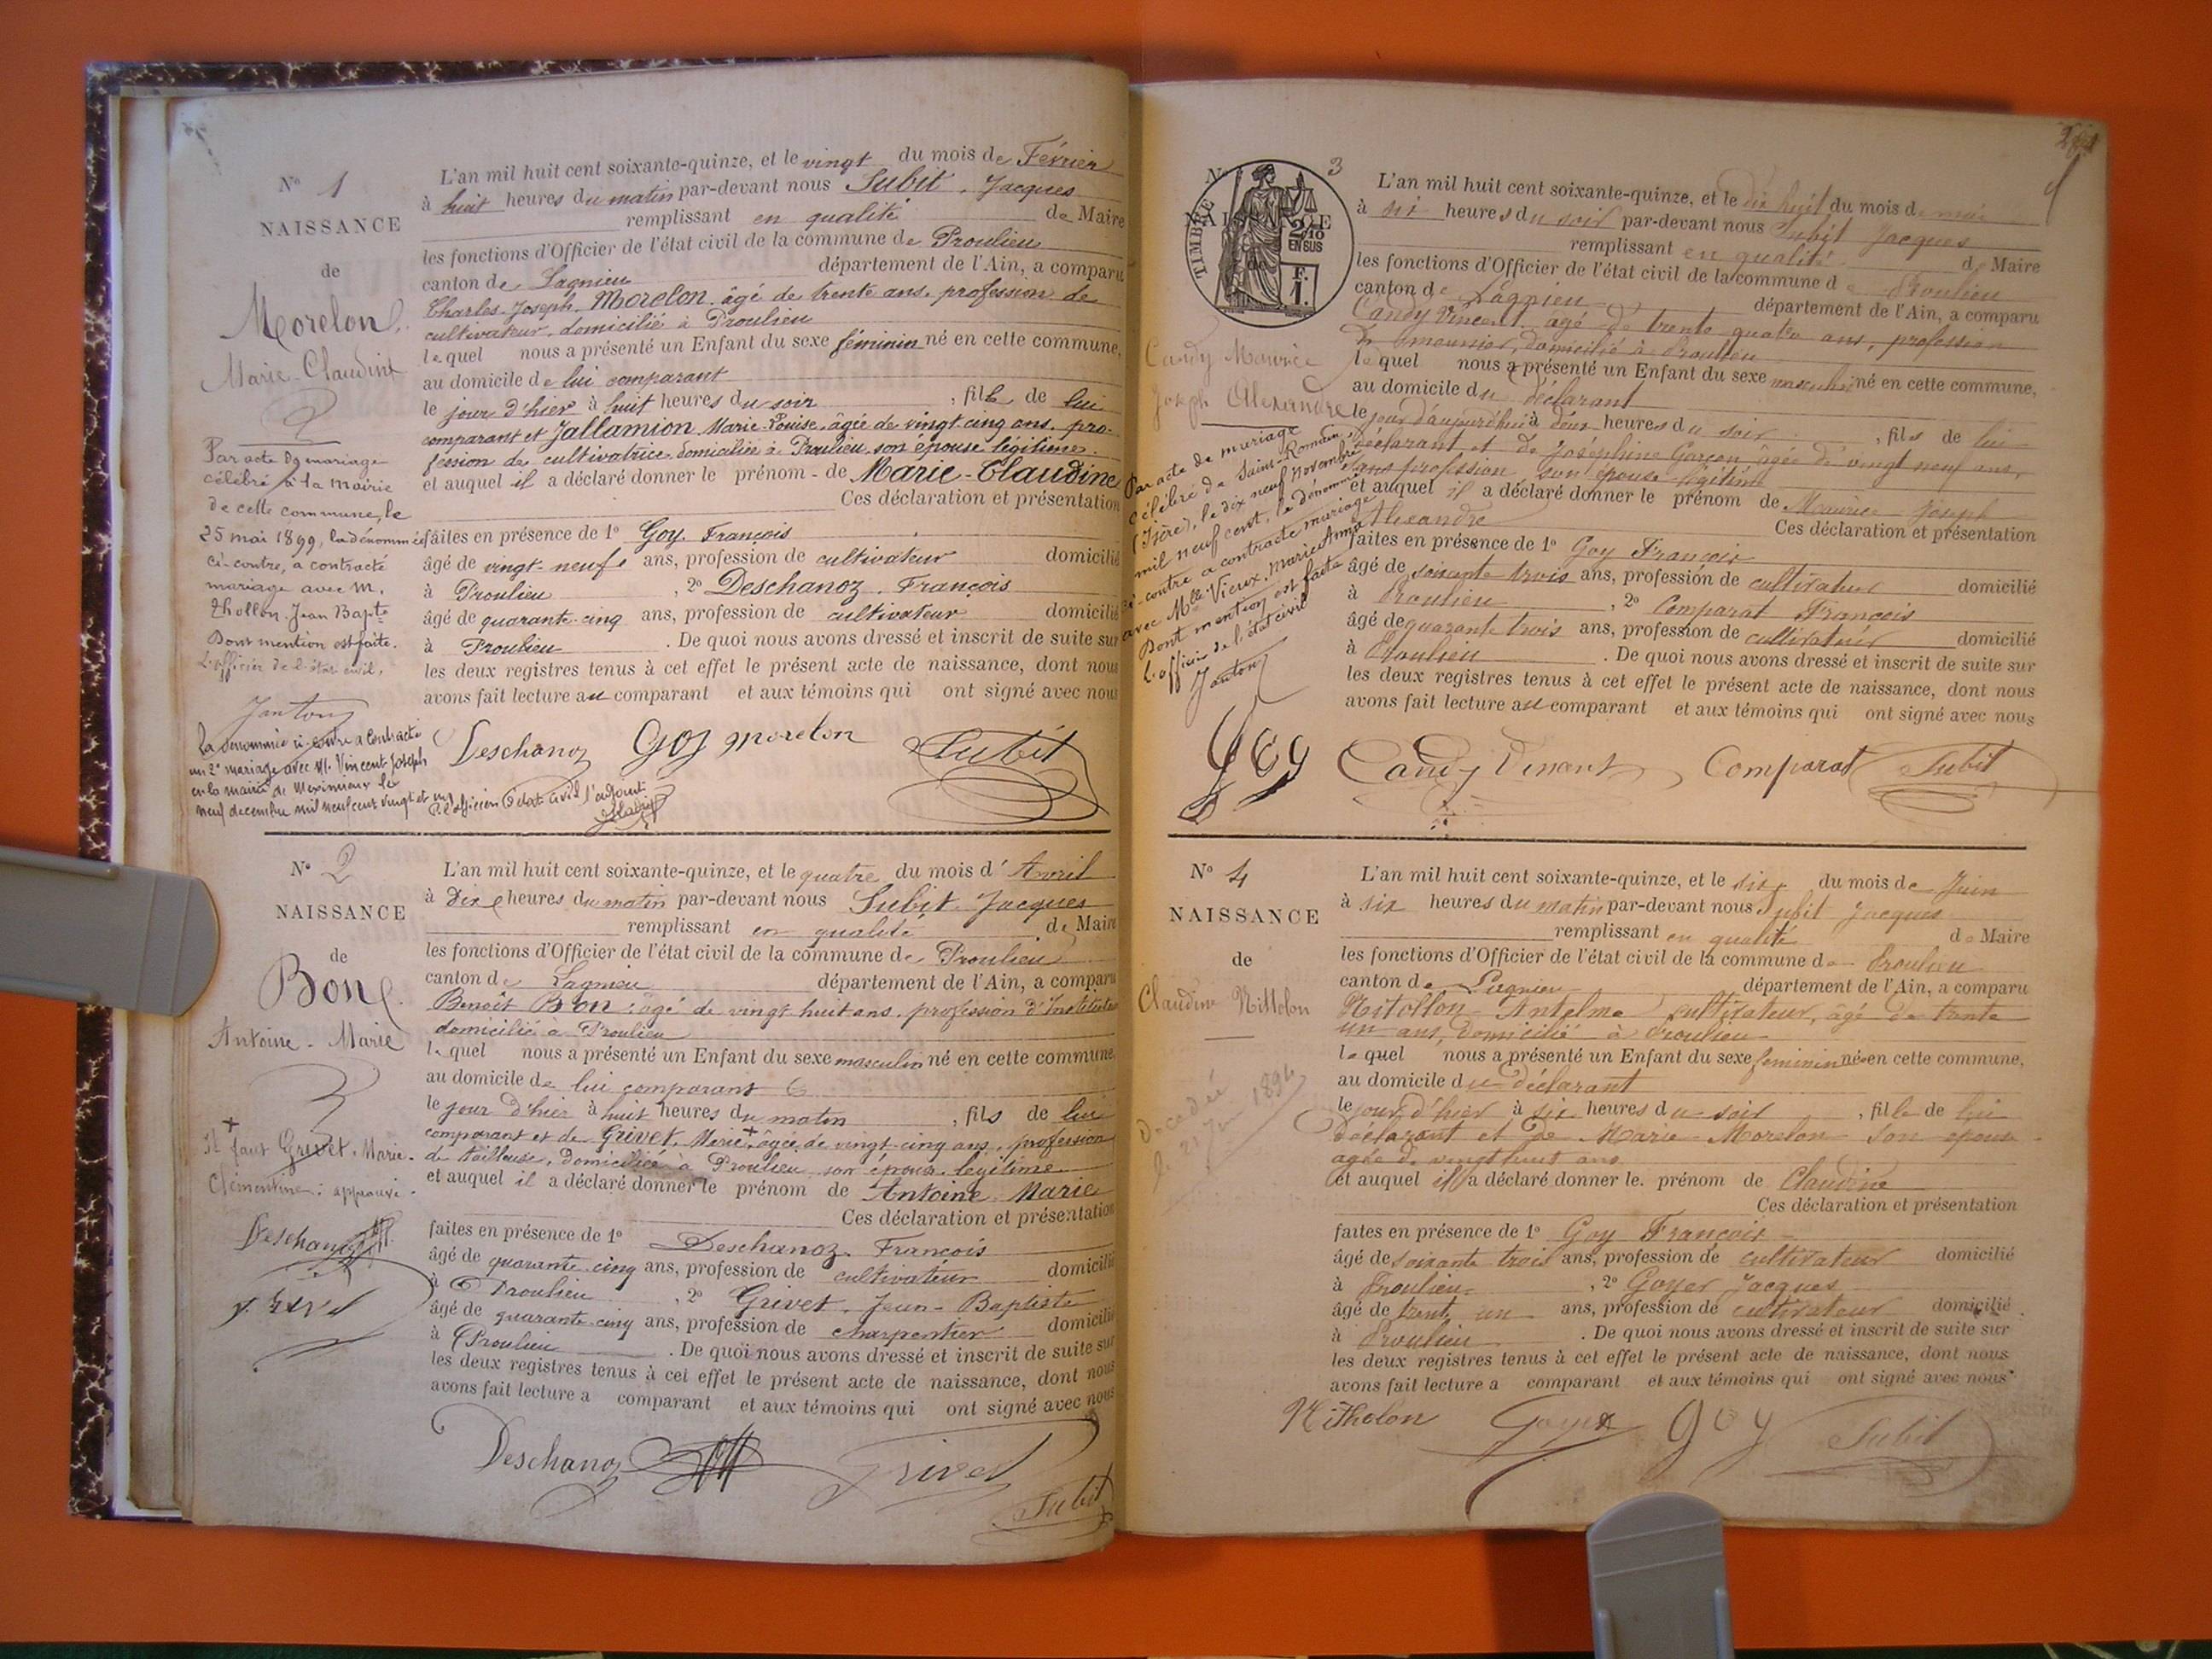 N° 1
NAISSANCE
de
Morelon
Marie-Claudine
Par acte de mariage
célébré à la mairie
de cette commune, le
25 mai 1899, la dénommée
ci-contre, a contracté
mariage avec M.
Thollon Jean Bapte
Dont mention est faite.
L'officier de l'état civil,
Janton
La dénommée ci-contre a contracté
un 2e mariage avec M. Vincent Joseph
en la mairie de Meximieux le
neuf decembre mil neuf cent vingt et un
P. l'officier d'état civil l'adjoint
L'an mil huit cent soixante-quinze, et le vingt du mois de Février
à huit heures du matin par-devant nous Subit, Jacques
remplissant en qualité de Maire
les fonctions d'Officier de l'état civil de la commune de Proulieu
canton de Lagnieu département de l'Ain, a comparu
Charles-Joseph Morelon âgé de trente ans, profession de
cultivateur, domicilié à Proulieu
lequel nous a présenté un Enfant du sexe féminin né en cette commune,
au domicile de lui comparant
le jour d'hier à huit heures du soir, fille de lui
comparant et Jallamion Marie-Louise, âgée de vingt cinq ans, pro-
fession de cultivatrice domiciliée à Proulieu son épouse légitime.
et auquel il a déclaré donner le prénom de Marie-Claudine
Ces déclaration et présentation
faites en présence de 1° Goy François
âgé de vingt-neuf ans, profession de cultivateur domicilié
à Proulieu, 2° Deschanoz François
âgé de quarante-cinq ans, profession de cultivateur domicilié
à Proulieu. De quoi nous avons dressé et inscrit de suite sur
les deux registres tenus à cet effet le présent acte de naissance, dont nous
avons fait lecture au comparant et aux témoins qui ont signé avec nous
Deschanoz Goy Morelon Subit
N° 2
NAISSANCE
de
Bon
Antoine-Marie
+
Il faut Grivet, Marie-
Clémentine: approuvé.
Deschanoz
Grivet
L'an mil huit cent soixante-quinze, et le quatre du mois d'Avril
à dix heures du matin par-devant nous Subit Jacques
remplissant en qualité de Maire
les fonctions d'Officier de l'état civil de la commune de Proulieu
canton de Lagnieu département de l'Ain, a comparu
Benoît Bon, âgé de vingt huit ans, profession d'Instituteur
domicilié à Proulieu
lequel nous a présenté un Enfant du sexe masculin né en cette commune,
au domicile de lui comparant
le jour d'hier à huit heures du matin, fils de lui
comparant et de Grivet, Marie + âgée de vingt-cinq ans, profession
de tailleuse, domiciliée à Proulieu son épouse légitime
et auquel il a déclaré donner le prénom de Antoine Marie
Ces déclaration et présentation
faites en présence de 1° Deschanoz François
âgé de quarante-cinq ans, profession de cultivateur domicilié
à Proulieu, 2° Grivet, Jean-Baptiste
âgé de quarante-cinq ans, profession de charpentier domicilié
à Proulieu. De quoi nous avons dressé et inscrit de suite sur
les deux registres tenus à cet effet le présent acte de naissance, dont nous
avons fait lecture a comparant et aux témoins qui ont signé avec nous
Deschanoz Grivet
Subit
N° 3
NAISSANCE
de
TIMBRE
2/10
EN SUS
F.
1.
Candy Maurice
Joseph Alexandre
Par acte de mariage
célébré de Saint-Romain,
(Isère), le dix neuf novembre
mil neuf cent, le dénommé
ci-contre a contracté mariage
avec Mlle Vieux, Marie Anna
Dont mention est faite
L'officier de l'état civil
Janton
L'an mil huit cent soixante-quinze, et le dix huit du mois de mai
à six heures du soir par-devant nous Subit Jacques
remplissant en qualité de Maire
les fonctions d'Officier de l'état civil de la commune de Proulieu
canton de Lagnieu département de l'Ain, a comparu
Candy Vincent âgé de trente quatre ans, profession
de meunier, domicilié à Proulieu
lequel nous a présenté un Enfant du sexe masculin né en cette commune,
au domicile du déclarant
le jour d'aujourd'hui à deux heures du soir, fils de lui
déclarant et de Joséphine Garçon âgée de vingt neuf ans,
sans profession son épouse légitime
et auquel il a déclaré donner le prénom de Maurice Joseph
Alexandre Ces déclaration et présentation
faites en présence de 1° Goy François
âgé de soixante trois ans, profession de cultivateur domicilié
à Proulieu, 2° Comparat François
âgé de quarante trois ans, profession de cultivateur domicilié
à Proulieu. De quoi nous avons dressé et inscrit de suite sur
les deux registres tenus à cet effet le présent acte de naissance, dont nous
avons fait lecture au comparant et aux témoins qui ont signé avec nous
Goy Candy Vincent Comparat Subit
N° 4
NAISSANCE
de
Claudine Nittolon
Décédée
1894
L'an mil huit cent soixante-quinze, et le six du mois de Juin
à six heures du matin par-devant nous Subit Jacques
remplissant en qualité de Maire
les fonctions d'Officier de l'état civil de la commune de Proulieu
canton de Lagnieu département de l'Ain, a comparu
Nitollon Anthelme cultivateur, âgé de trente
un ans, domicilié à Proulieu
lequel nous a présenté un Enfant du sexe feminin née en cette commune,
au domicile du déclarant
le jour d'hier à six heures du soir, fille de lui
déclarant et de Marie Morelon son épouse
agée de vingt huit ans
et auquel il a déclaré donner le prénom de Claudine
Ces déclaration et présentation
faites en présence de 1° Goy François
âgé de soixante trois ans, profession de cultivateur domicilié
à Proulieu, 2° Goyer Jacques
âgé de trente un ans, profession de cultivateur domicilié
à Proulieu. De quoi nous avons dressé et inscrit de suite sur
les deux registres tenus à cet effet le présent acte de naissance, dont nous
avons fait lecture a comparant et aux témoins qui ont signé avec nous
Nitholon Goyer Goy Subit